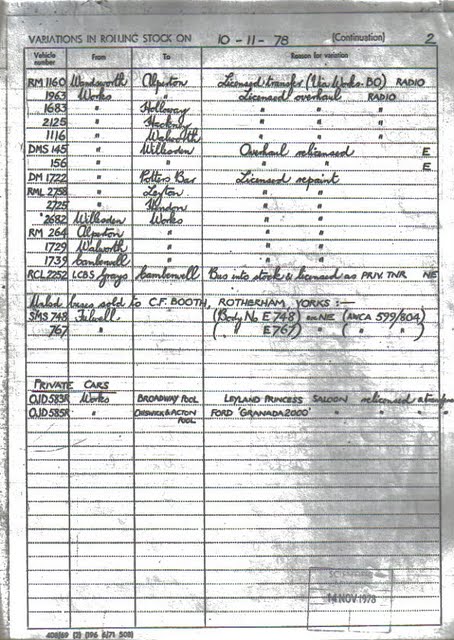 VARIATIONS IN ROLLING STOCK ON 10-11-78 (Continuation) 2
Vehicle number From To Reason for variation
RM 1160 Wandsworth Alperton Licensed transfer (Via Works. BO) RADIO
1963 Works " Licensed overhaul RADIO
1683 " Holloway " " "
2125 " Hackney " " "
1116 " Walworth " " "
DMS 145 " Willesden Overhaul relicensed E
156 " " " " E
DM 1722 " Potters Bar Licensed repaint
RML 2758 " Leyton " "
2725 " Hendon " "
2682 Willesden Works " "
RM 264 Alperton " " "
1729 Walworth " " "
1739 Camberwell " " "
RCL 2252 LCBS Grays Camberwell Bus into stock & licensed as PRIV. TNR NE
buses sold to C.F. BOOTH, ROTHERHAM, YORKS :—
SMS 748 Fulwell. (Body No E 748) NE (AWCA 599/804)
767 " ( " E767) " ( " " )
PRIVATE CARS
OJD 583R Works BROADWAY POOL LEYLAND PRINCESS SALOON relicensed
OJD 585R " CHISWICK & ACTON POOL FORD 'GRANADA 2000' " " "
14 NOV 1978
408/69 (2) (196 6/71 508)